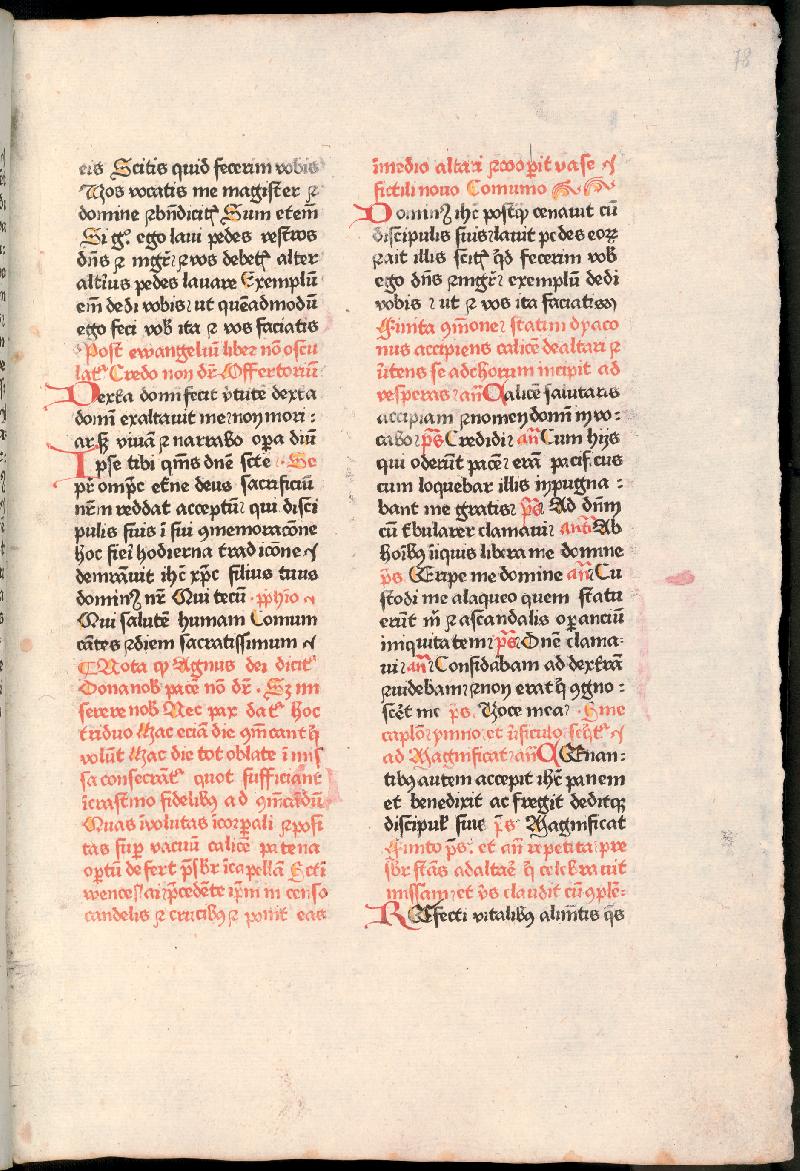 78
eis Scitis quid fecerim vobis
Vos vocatis me magister ⁊
domine ⁊ bn̄dicitꝭ Sum etem̄
Si gͦ ego laui pedes vestros
dn̄s ⁊ mgr̄ ⁊ vos debetꝭ alter
alt̾ius pedes lauare Exemplū
em̄ dedi vobis ut quēadmodū
ego feci vob̄ ita ⁊ vos faciatis
Post ewangeliū liber nō oscu
latᷣ Credo non dr̄ Offertoriū
Dextᷓa domī fecit v̾tutē dextᷓa
domī exaltauit me non mori
arꝫ viuā ⁊ narrabo oꝑa dn̄i
Ipse tibi qm̄s dn̄e sctē Se
pr̄ omp̄c et̾ne deus sacrificiū
nr̄m reddat acceptū qui disci
pulis suis ī sui ꝯmemoracōne
hoc fieī hodierna tradicōne
demr̄auit ih̄c xp̄c filius tuus
dominꝰ nr̄ Qui tecū p̄phio
Qui salutē humani Comum
cātes ⁊ diem sacratissimum
Nota ꝙ Agnus dei dicitᷣ
Dona nob pacē nō dr̄ Sꝫ mi
serere nob Nec pax datᷣ hoc
triduo Hac eciā die ꝯm̄cant q̄
volūt Hac die tot oblate ī mis
sa consecratᷣ quot sufficiant
ī crastino fidelibꝰ ad ꝯm̄candū
Quas īvolutas ī corꝑali ⁊ posi
tas suꝑ vacuū calicē patena
oꝑtū defert p̄sbr ī capellā Scti
wencesl̾ai p̄cedēte ip̄m incenso
candelis ⁊ crucibꝰ ⁊ ponit eas
ī medio altari ⁊ cooꝑit vase
fictili nouo Comunio
Dominꝰ ih̄c postꝙ̄ cenauit cū
discipulis suis lauit pedes eoꝝ
⁊ ait illis scitꝭ qd̄ fecerim vob̄
ego dn̄s ⁊ mgr̄ exemplū dedi
vobis ut ⁊ vos ita faciatis
Finita ꝯm̄one statim dyaco
nus accipiens calicē de altari ⁊
v̾tens se ad chorum incipit ad
vesperas an̄ Calicē salutaris
accipiam ⁊ nomen domī invo
cabo p̄s Credidi an̄ Cum hijs
qui oderūt pacē erā pacificus
cum loquebar illis inpugna
bant me gratis p̄s Ad dn̄m
cū t̾bularer clamaui an̄ Ab
hoībꝰ īiquis libera me domine
p̄s Eripe me domine an̄ Cu
stodi me a laqueo quem statu
erūt m̄ ⁊ a scandalis oꝑanciū
iniquitatem p̄s Dn̄e clama
ui an̄ Considerabam ad dext̾rā
⁊ videbam ⁊ non erat q̄ ꝯgno
scēt me p̄s Voce mea Sine
caplō ymno et v̾siculo seq̄tᷣ
ad Magnificat an̄ Cenan
tibꝰ autem accepit ih̄c panem
et benedixit ac fregit deditqꝫ
discipul̄ suis p̄s Magnificat
Finito p̄s et an̄ repetita pre
sbr stās ad altar̄ q̄ celebrauit
missam et v̾s claudit cū ꝯplē
Refecti vitalibꝰ alim̄tis q̄s